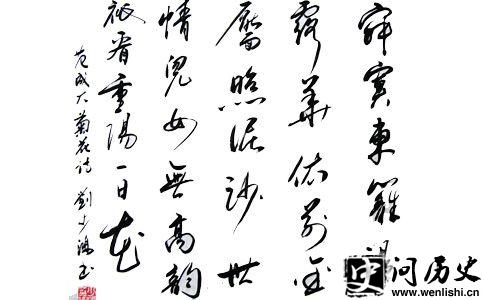 寂寞東籬濕
露華依前金
靨照泥沙世
情兒女無高韻
祇看重陽一日花
范成大菊花诗 劉少
问历史
www.wenlishi.com